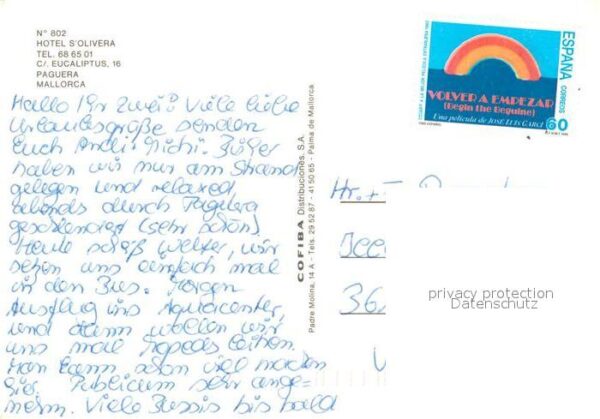 N° 802
HOTEL S'OLIVERA
TEL. 68 65 01
C/. EUCALIPTUS, 16
PAGUERA
MALLORCA
Hallo Ihr zwei! Viele liebe
Urlaubsgrüße senden
Euch Andi + Michi. Bisher
haben wir nur am Strand
gelegen und relaxed,
abends durch Paguera
geschlendert (sehr schön).
Heute scheiß Wetter, wir
setzen uns einfach mal
in den Bus. Morgen
Ausflug ins Aquacenter,
und dann wollen wir
uns mal Mopeds leihen.
Man kann schon viel machen
hier. Publicum sehr ange-
nehm. Viele Bussis bis bald
COFIBA Distribuciones, S.A.
Padre Molina, 14 A - Tels. 29 52 87 - 41 50 65 - Palma de Mallorca
ESPAÑA
CORREOS
VOLVER A EMPEZAR
(Begin the Beguine)
Una película de JOSE LUIS GARCI
60
CINE ESPAÑOL
Hr. +
36
privacy protection
Datenschutz